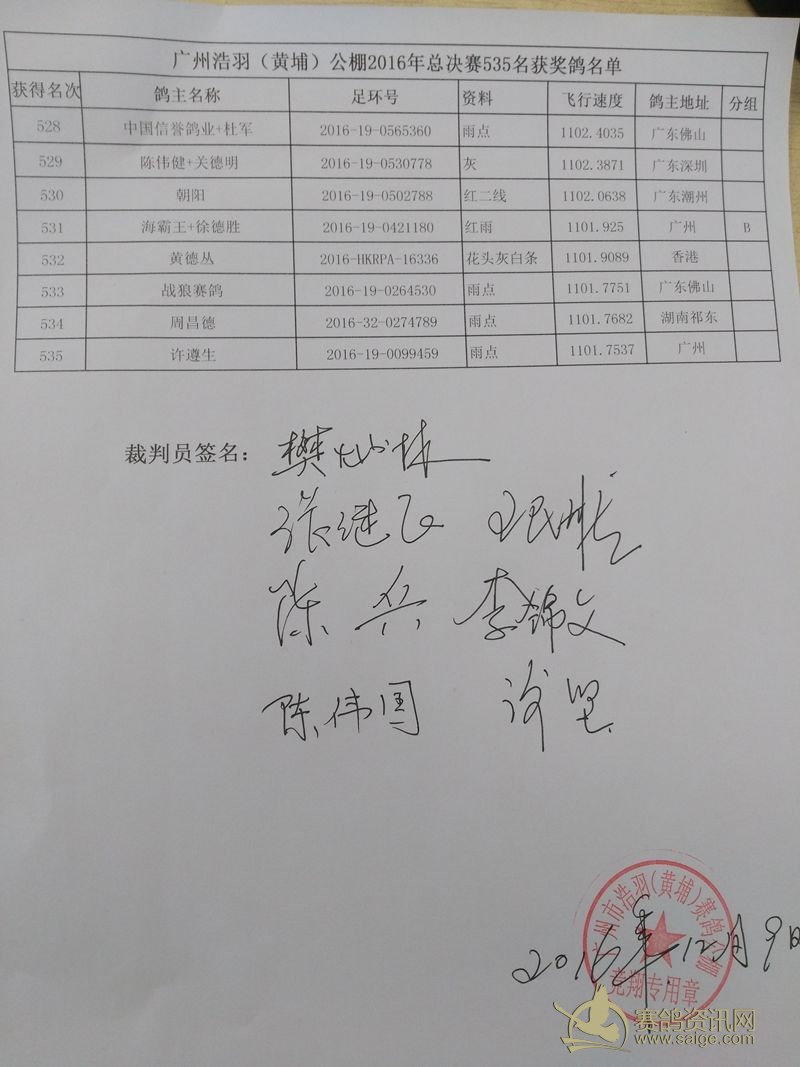 广州浩羽（黄埔）公棚2016年总决赛535名获奖鸽名单
获得名次 鸽主名称 足环号 资料 飞行速度 鸽主地址 分组
528 中国信誉鸽业+杜军 2016-19-0565360 雨点 1102.4035 广东佛山
529 陈伟健+关德明 2016-19-0530778 灰 1102.3871 广东深圳
530 朝阳 2016-19-0502788 红二线 1102.0638 广东潮州
531 海霸王+徐德胜 2016-19-0421180 红雨 1101.925 广州 B
532 黄德丛 2016-HKRPA-16336 花头灰白条 1101.9089 香港
533 战狼赛鸽 2016-19-0264530 雨点 1101.7751 广东佛山
534 周昌德 2016-32-0274789 雨点 1101.7682 湖南祁东
535 许遵生 2016-19-0099459 雨点 1101.7537 广州
裁判员签名：樊灿林
张继飞
陈兵 李锦文
陈伟国
广州市浩羽（黄埔）赛鸽公棚
竞翔专用章
2016年12月9日
赛鸽资讯网
www.saige.com